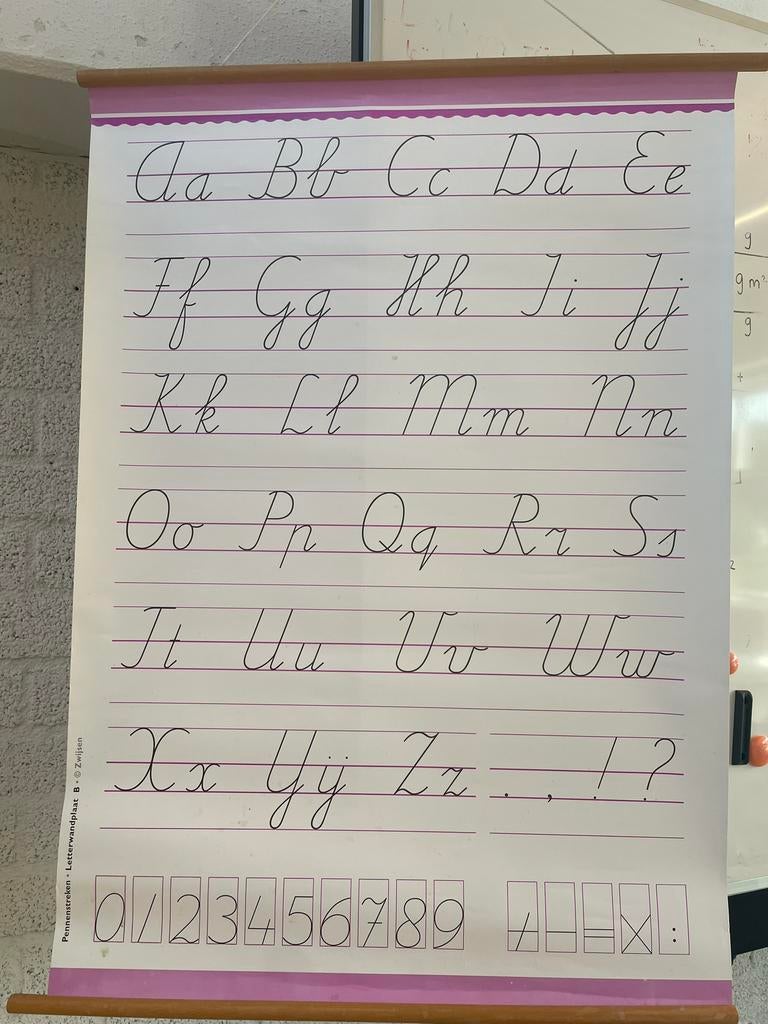 Aa Bb Cc Dd Ee
Ff Gg Hh Ii Jj
Kk Ll Mm Nn
Oo Pp Qq Rr Ss
Tt Uu Vv Ww
Xx Yÿ Zz . , ! ?
0 1 2 3 4 5 6 7 8 9 + - = x :
Pennenstreken • Letterwandplaat B • © Zwijsen
g
g m²
g
+
2